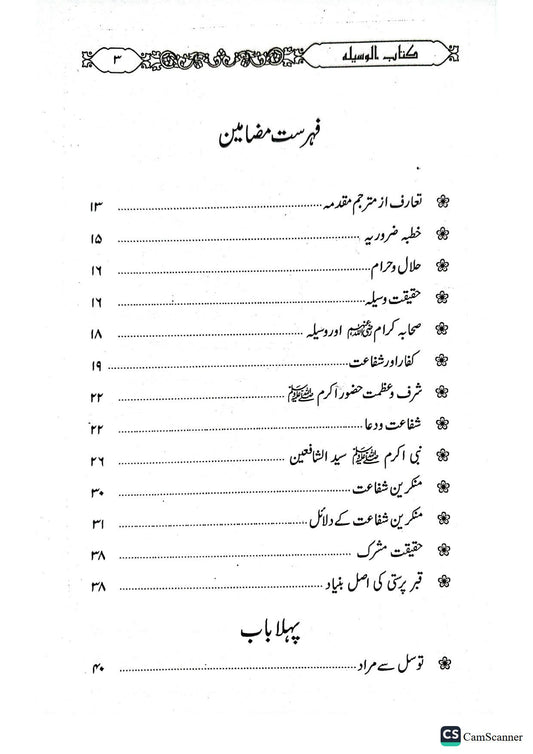 کتاب الوسیلہ ۳
فہرست مضامین
تعارف از مترجم مقدمہ ۱۳
خطبہ ضروریہ ۱۵
حلال وحرام ۱۶
حقیقت وسیلہ ۱۶
صحابہ کرام رضی اللہ عنہم اور وسیلہ ۱۸
کفار اور شفاعت ۱۹
شرف وعظمت حضور اکرم ﷺ ۲۲
شفاعت ودعا ۲۲
نبی اکرم ﷺ سید الشافعین ۲۶
منکرین شفاعت ۳۰
منکرین شفاعت کے دلائل ۳۱
حقیقت مشرک ۳۸
قبر پرستی کی اصل بنیاد ۳۸
پہلا باب
توسل سے مراد ۴۰
CS CamScanner